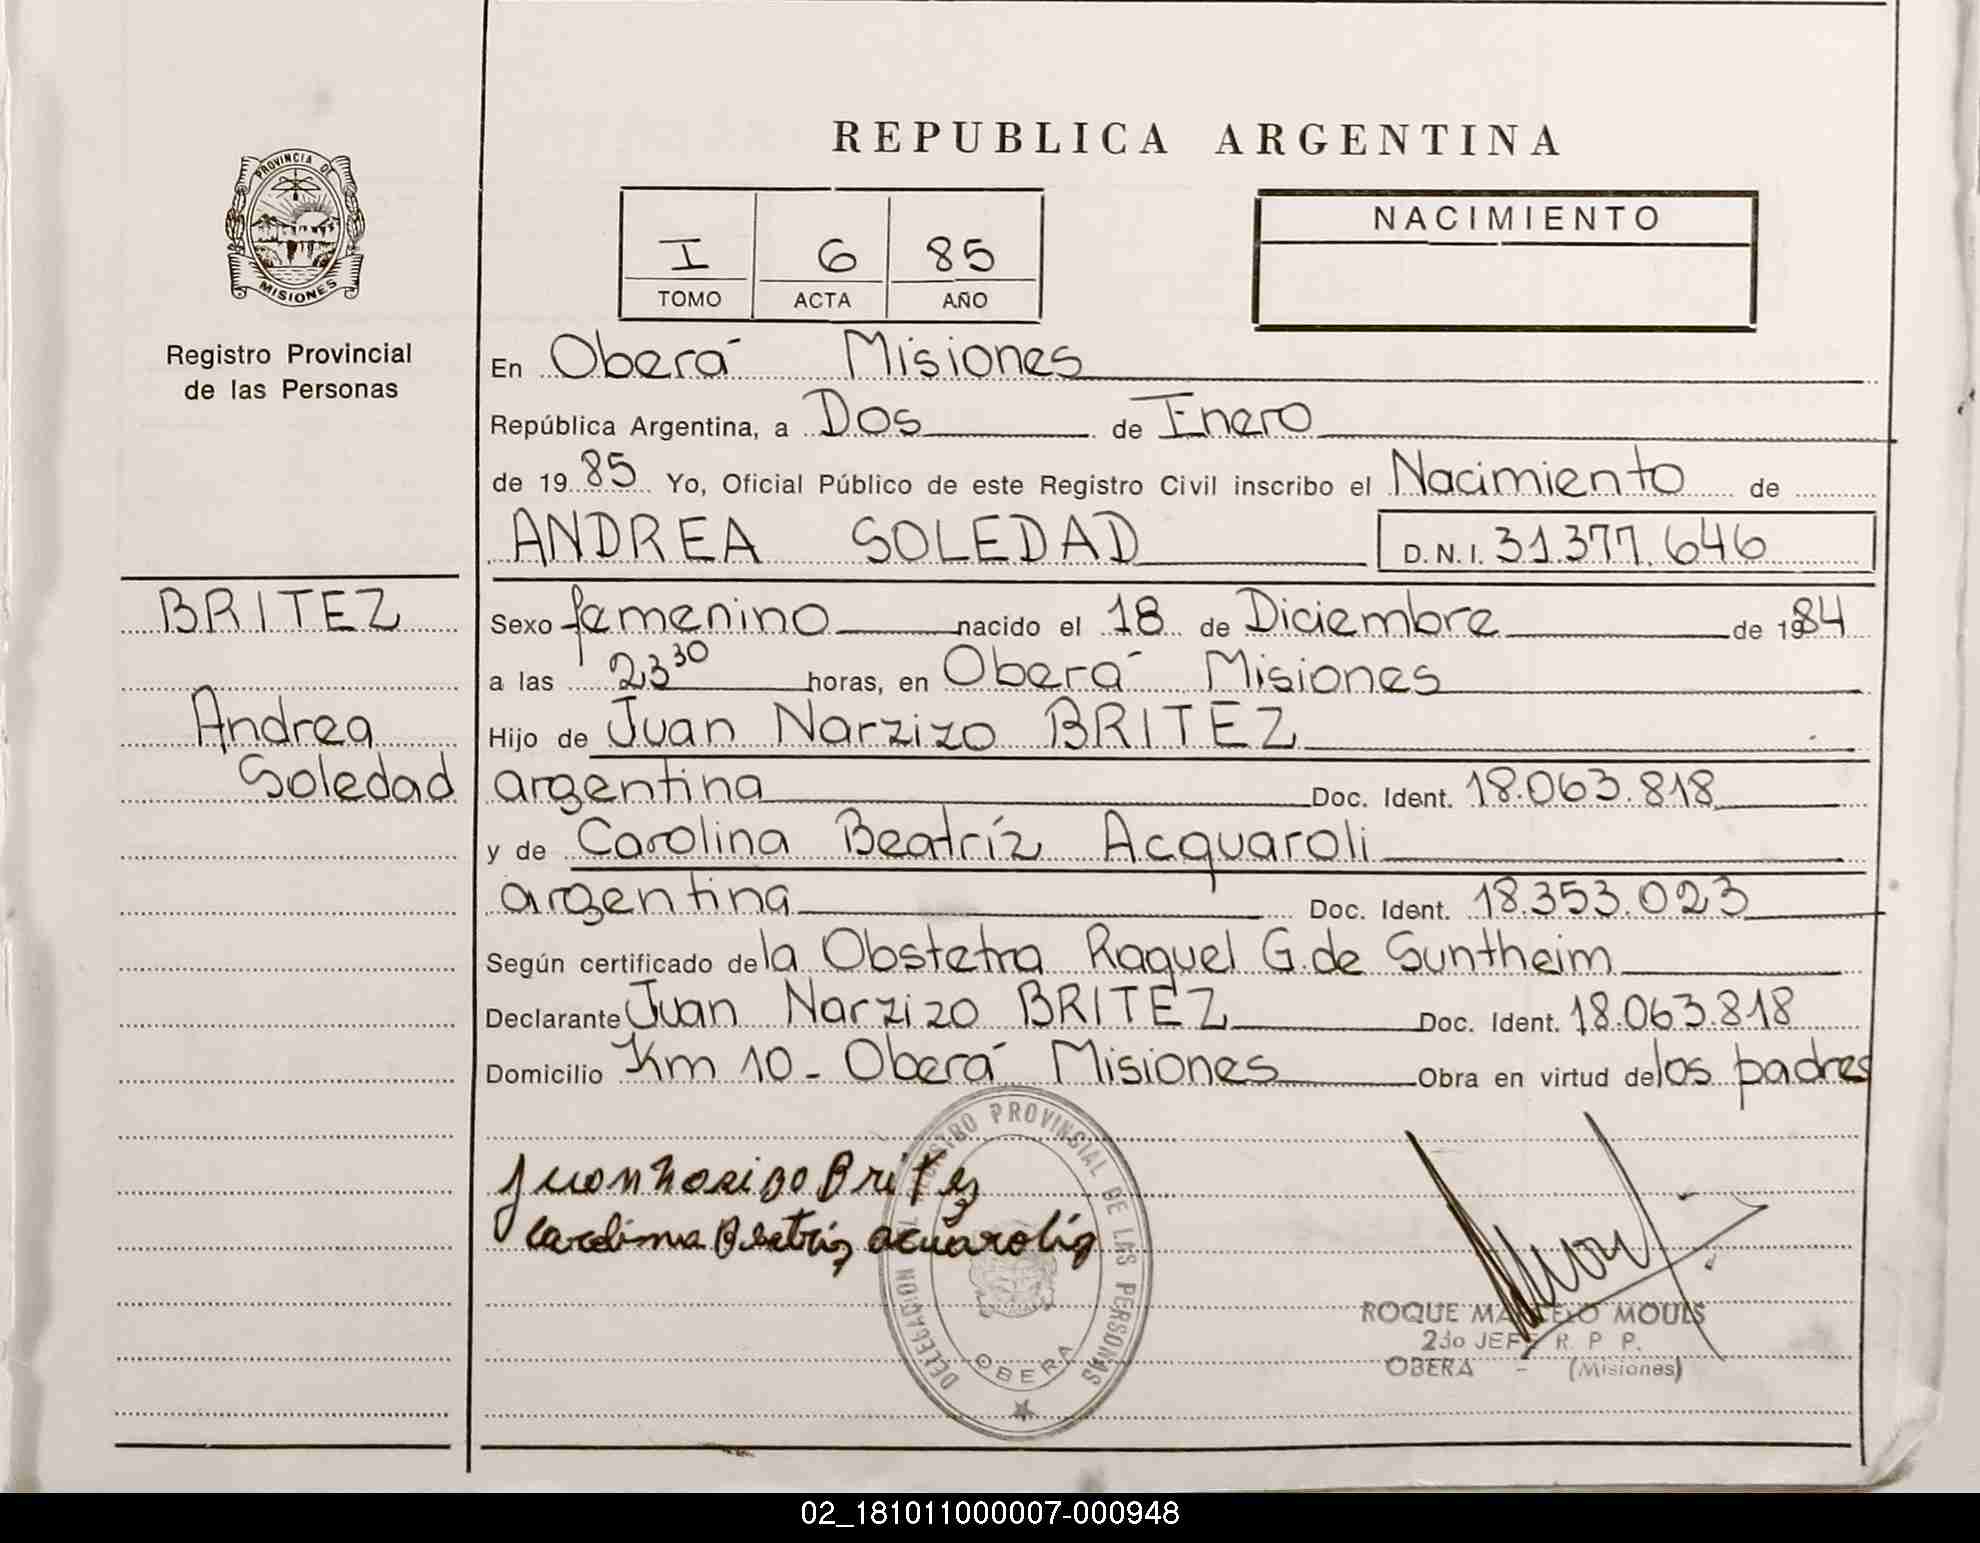 REPUBLICA ARGENTINA
PROVINCIA DE
MISIONES
Registro Provincial
de las Personas
I 6 85
TOMO ACTA AÑO
NACIMIENTO
En Oberá Misiones
República Argentina, a Dos de Enero
de 19 85 Yo, Oficial Público de este Registro Civil inscribo el Nacimiento de
ANDREA SOLEDAD D.N.I. 31.377.646
BRITEZ
Andrea
Soledad
Sexo femenino nacido el 18 de Diciembre de 1984
a las 23 30 horas, en Oberá Misiones
Hijo de Juan Narzizo BRITEZ
argentina Doc. Ident. 18.063.818
y de Carolina Beatríz Acquaroli
argentina Doc. Ident. 18.353.023
Según certificado de la Obstetra Raquel G. de Suntheim
Declarante Juan Narzizo BRITEZ Doc. Ident. 18.063.818
Domicilio Km 10 - Oberá Misiones Obra en virtud de los padres
DELEGACION DEL REGISTRO PROVINSIAL DE LAS PERSONAS
OBERA
ROQUE MARCELO MOULS
2do JEFE R. P. P.
OBERA - (Misiones)
02_181011000007-000948